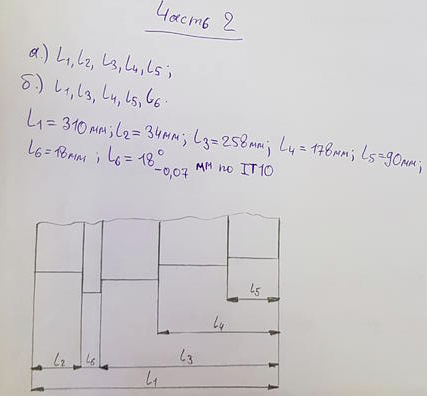 Часть 2
а.) L1, L2, L3, L4, L5;
б.) L1, L3, L4, L5, L6.
L1 = 310мм; L2 = 34мм; L3 = 258мм; L4 = 178мм; L5 = 90мм;
L6 = 18мм; L6 = 18 0 -0,07 мм по IT10
L5
L4
L2 L6 L3
L1